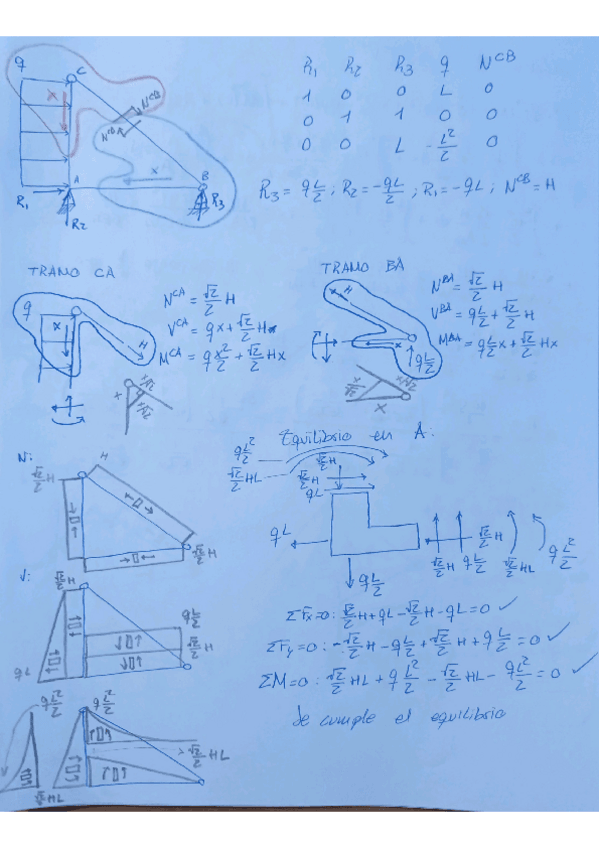 q C R₁ R₂ R₃ q Nᶜᴮ
1 0 0 L 0
x Nᶜᴮ
Nᶜᴮ
0 1 1 0 0
0 0 L -L²/2 0
A x B
R₁ R₂ R₃
R₃ = qL/2 ; R₂ = -qL/2 ; R₁ = -qL ; Nᶜᴮ = H
TRAMO CA
q x H
Nᶜᴬ = √2/2 H
Vᶜᴬ = qx + √2/2 H
Mᶜᴬ = q x²/2 + √2/2 Hx
x x/√2 x/√2
TRAMO BA
H x qL/2
Nᴮᴬ = √2/2 H
Vᴮᴬ = qL/2 + √2/2 H
Mᴮᴬ = qL/2 x + √2/2 Hx
x/√2 x/√2
x
N:
H
√2/2 H
√2/2 H
V:
√2/2 H
qL/2
√2/2 H
qL
qL²/2 qL²/2
√2/2 HL
√2/2 HL
Equilibrio en A:
qL²/2
√2/2 HL
√2/2 H
√2/2 H
qL
qL
√2/2 H
√2/2 H qL/2 √2/2 HL qL²/2
qL/2
ΣFx=0: √2/2 H + qL - √2/2 H - qL = 0 ✓
ΣFy=0: -√2/2 H - qL/2 + √2/2 H + qL/2 = 0 ✓
ΣM=0: √2/2 HL + qL²/2 - √2/2 HL - qL²/2 = 0 ✓
Se cumple el equilibrio